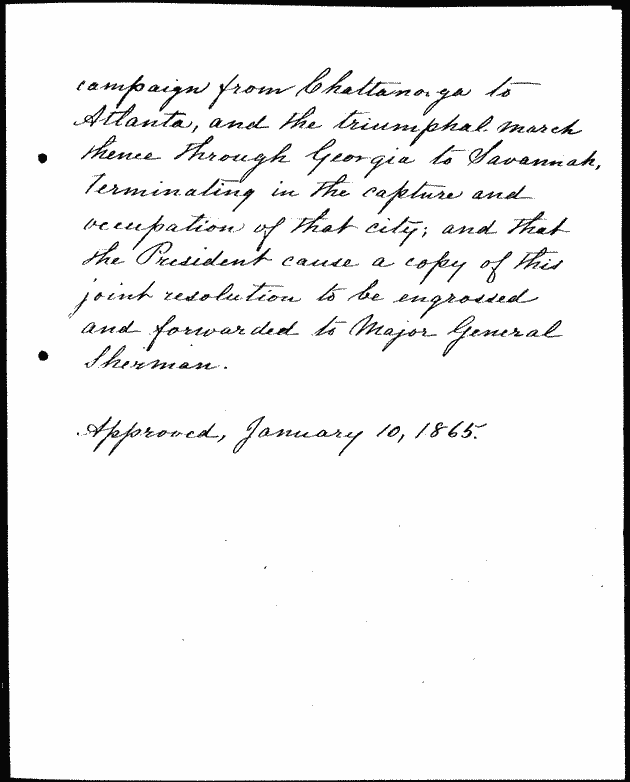 campaign from Chattanooga to
Atlanta, and the triumphal march
thence through Georgia to Savannah,
terminating in the capture and
occupation of that city; and that
the President cause a copy of this
joint resolution to be engrossed
and forwarded to Major General
Sherman.
Approved, January 10, 1865.